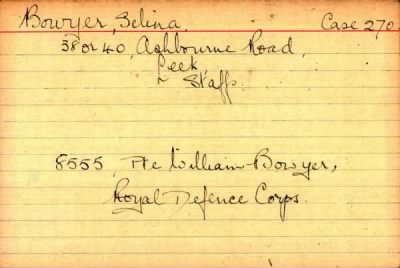 Bowyer, Selina. Case 270.
38 or 40, Ashbourne Road,
Leek
~ Staffs.
8555, Pte William Bowyer,
Royal Defence Corps.